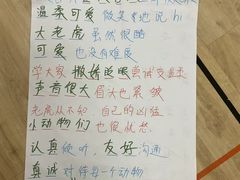 温柔可爱 微笑地说 hi
大老虎 虽然很酷
可爱 也没有难度
学大家
声音很大 眉头也紧皱
老虎从不知 自己的凶猛
小动物们 也很
认真倾听 友好沟通
真诚 对待每一个动物